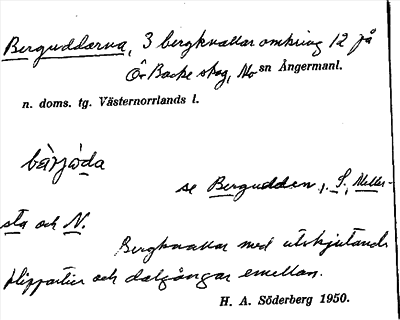 Berguddarna, 3 bergknallar omkring 12 på
Ö Backe skog, No sn Ångermanl.
n. doms. tg. Västernorrlands l.
se Bergudden, S, Meller-
sta och N.
Bergknallar med utskjutande
klippartier och dalgångar emellan.
H. A. Söderberg 1950.